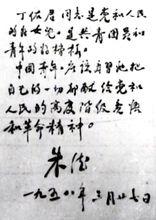 丁佑君同志是党和人民
的好女儿，是共青团员和
青年的好榜样。
中国青年，应该学习她把
自己的一切都献给党和
人民的高度阶级觉悟
和革命精神。
朱德
一九五八年三月廿七日